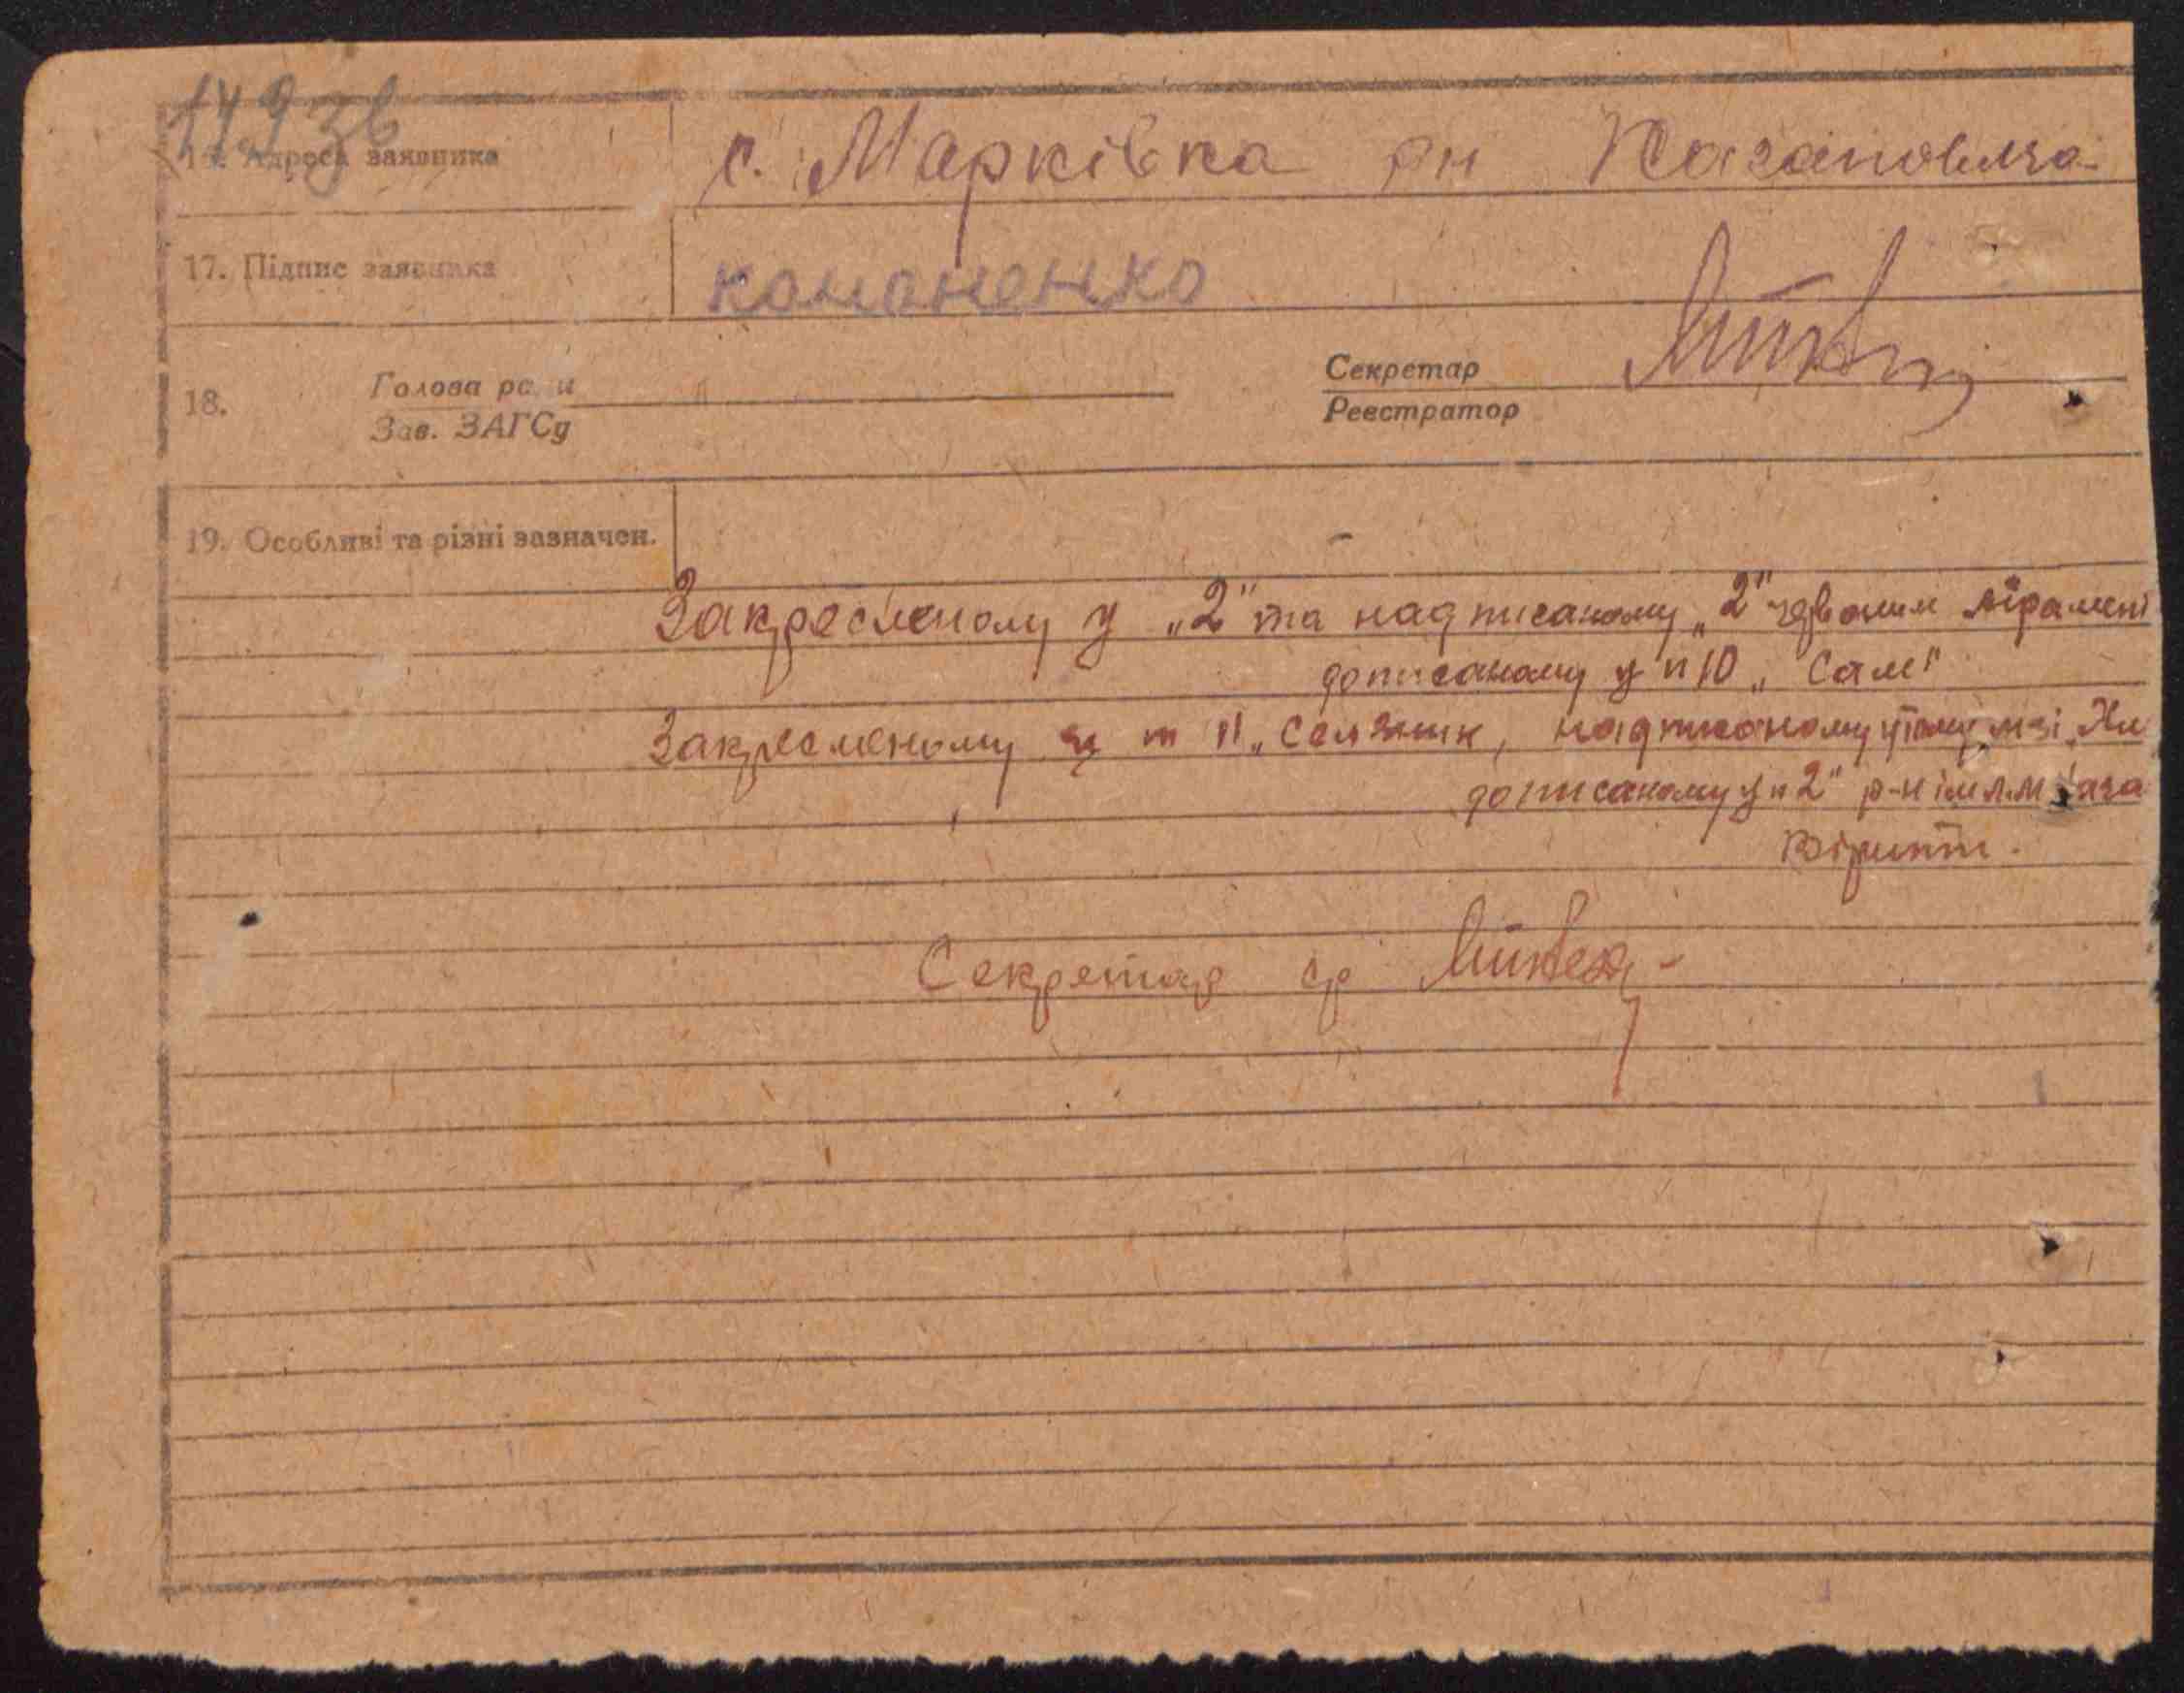 149 зв
16. Адреса заявника с. Марківка рн Кагановича
17. Підпис заявника команенко
18. Голова ради
Зав. ЗАГСу
Секретар
Реєстратор
19. Особливі та різні зазначен.
Закресленому у „2" та надписаному „2"
дописаному у п 10 „ Сам"
Закресленому у п 11 „ Селяник, надписаному
дописаному у п 2" р-н ім Л.М
вірити.
Секретар ср